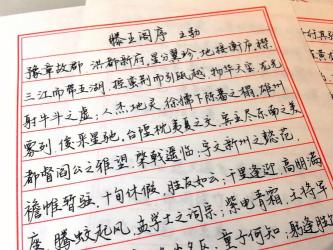 滕王阁序 王勃
豫章故郡,洪都新府,星分翼轸,地接衡庐,襟
三江而带五湖,控蛮荆而引瓯越。物华天宝,龙光
射牛斗之虚;人杰地灵,徐孺下陈蕃之榻,雄州
雾列,俊采星驰,台隍枕夷夏之交,宾主尽东南之美
都督阎公之雅望,棨戟遥临;宇文新州之懿范,
襜帷暂驻,十旬休假,胜友如云;千里逢迎,高朋满
座,腾蛟起凤,孟学士之词宗;紫电青霜,王将军
童子何知,躬逢胜